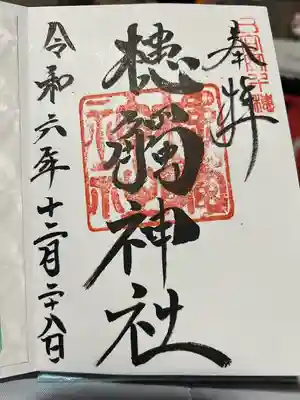 奉拝
槵觸神社
令和六年十二月二十八日